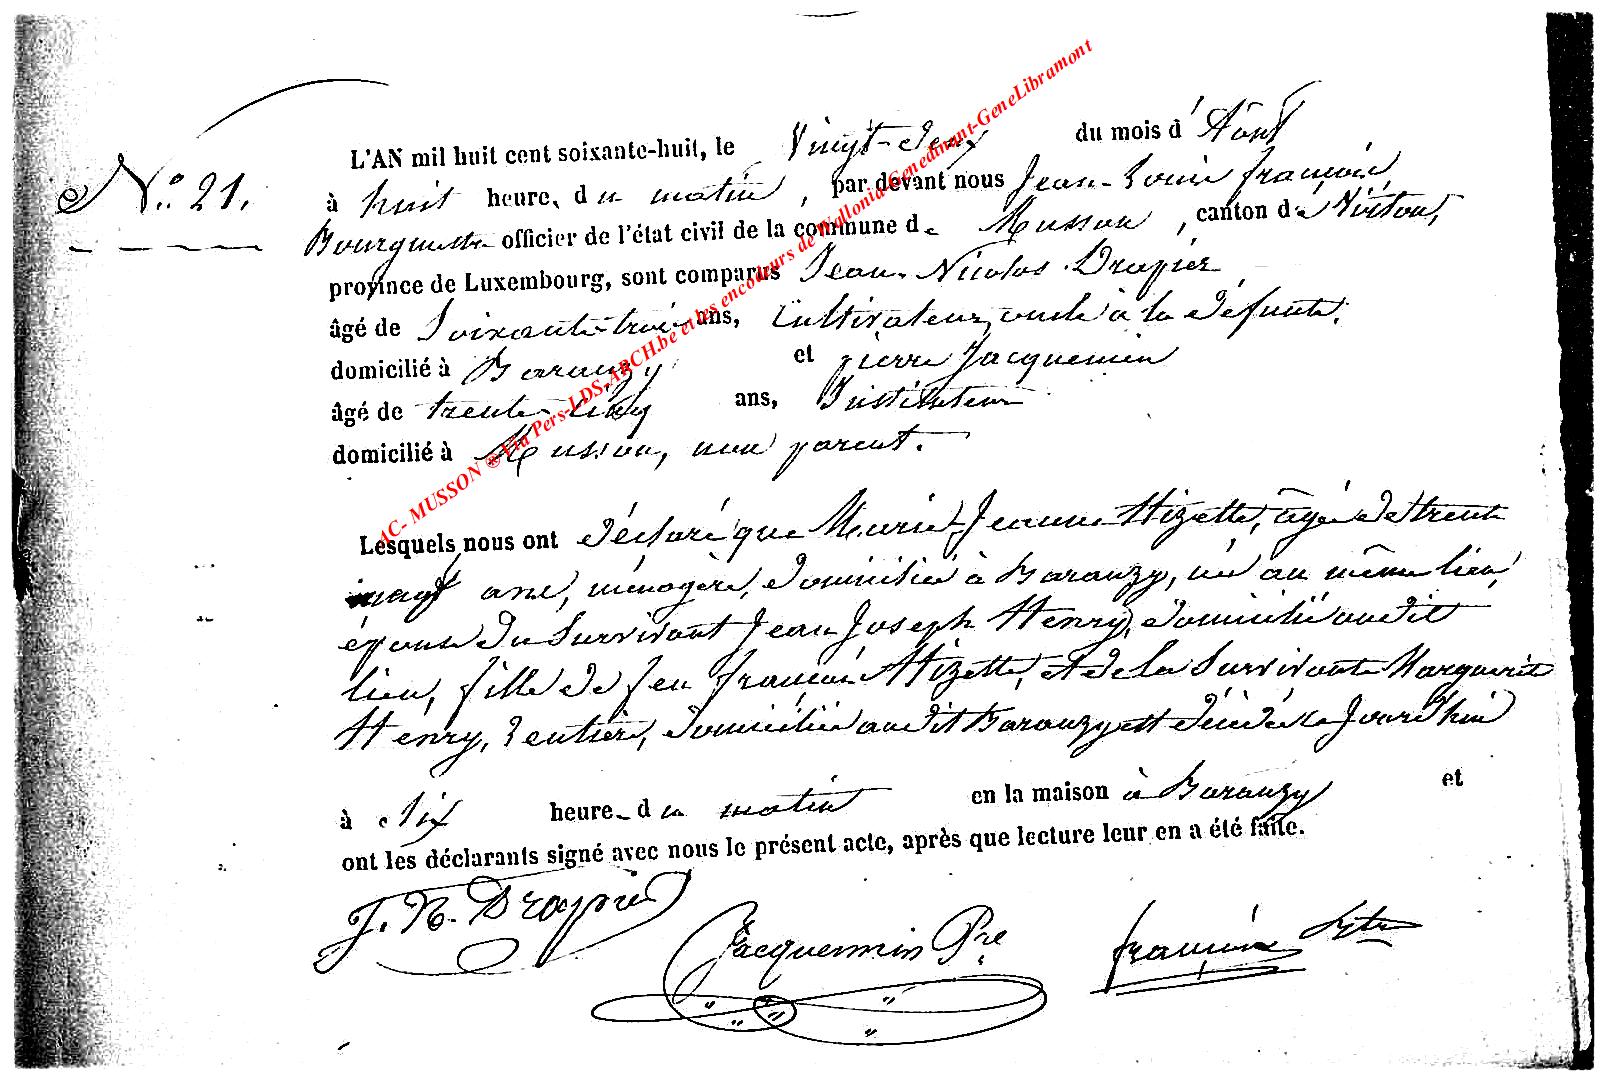 N.° 21.
L'AN mil huit cent soixante-huit, le Vingt-deux du mois d'Août
à huit heure, du matin, par devant nous Jean-Louis françois,
Bourgmestre officier de l'état civil de la commune de Musson, canton de Virton,
province de Luxembourg, sont comparus Jean-Nicolas Drapier
âgé de Soixante-trois ans, Cultivateur, oncle à la défunte,
domicilié à Baranzy et pierre Jacquemin
âgé de trente-cinq ans, Instituteur
domicilié à Musson, non parent.
Lesquels nous ont déclaré que Marie-Jeanne Hizette, âgée de trente
ans, ménagère, domiciliée à Baranzy, née au même lieu,
épouse du Survivant Jean Joseph Henry, domicilié audit
lieu, fille de feu françois Hizette, et de la Survivante Marguerite
Henry, rentière, domiciliée audit Baranzy est décédée le Jourd'hui
à Six heure du matin en la maison à Baranzy et
ont les déclarants signé avec nous le présent acte, après que lecture leur en a été faite.
J. N. Drapier
Jacquemin Pre
françois
AC- MUSSON ® Via Pers-LDS-ARCH.be et les encodeurs de Wallonia-Genedinant-GeneLibramont